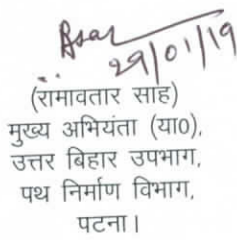 29/01/19
(रामावतार साह)
मुख्य अभियंता (या०),
उत्तर बिहार उपभाग,
पथ निर्माण विभाग,
पटना।